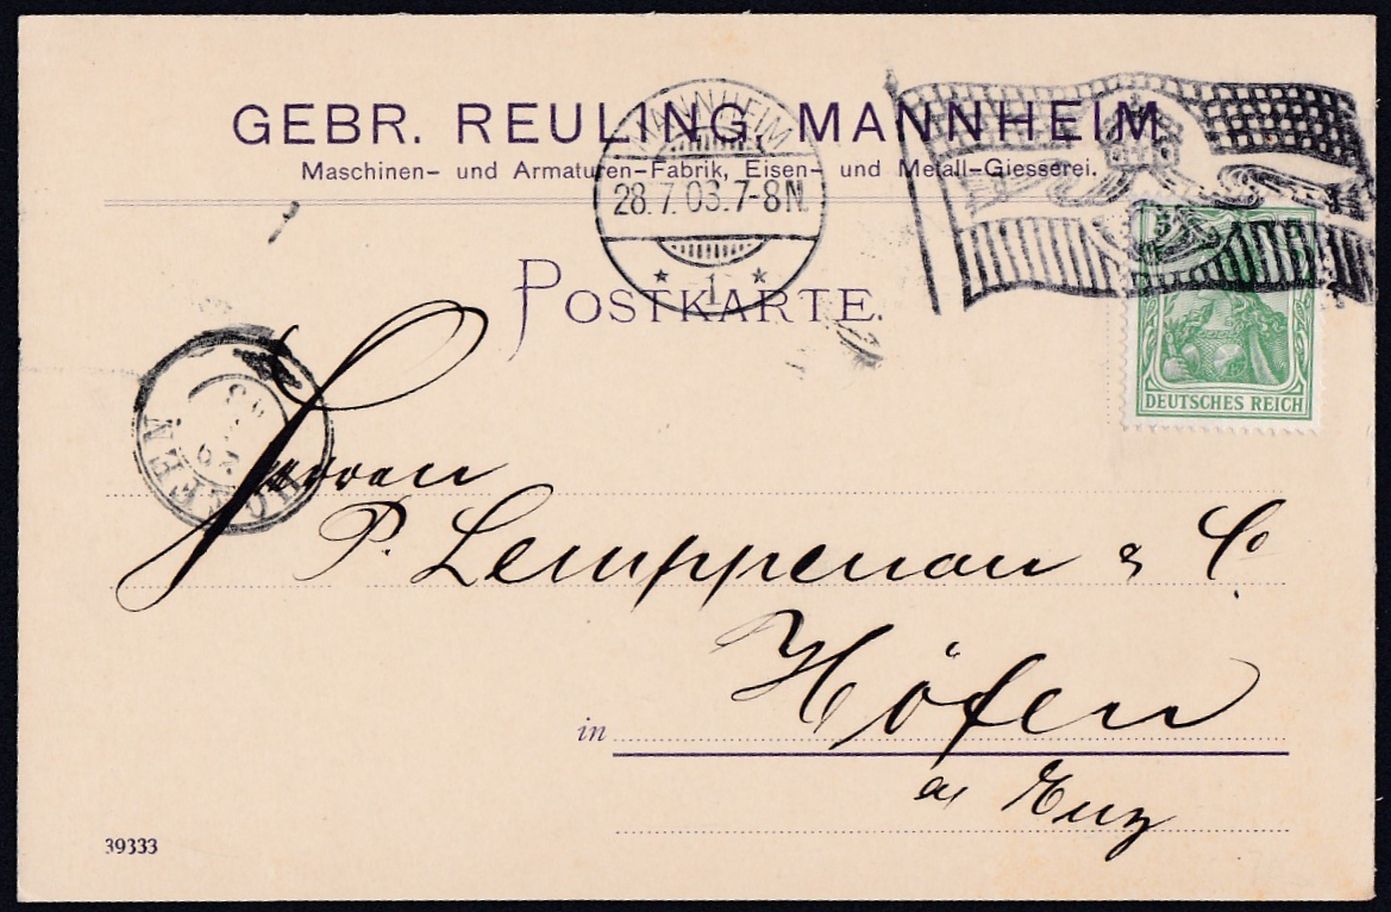 GEBR. REULING, MANNHEIM
Maschinen- und Armaturen-Fabrik, Eisen- und Metall-Giesserei.
MANNHEIM
28.7.03.7-8N.
* 1 *
POSTKARTE.
5
DEUTSCHES REICH
HÖFEN
Herren
P. Lemppenau & Co.
in Höfen
a/ Enz
39333